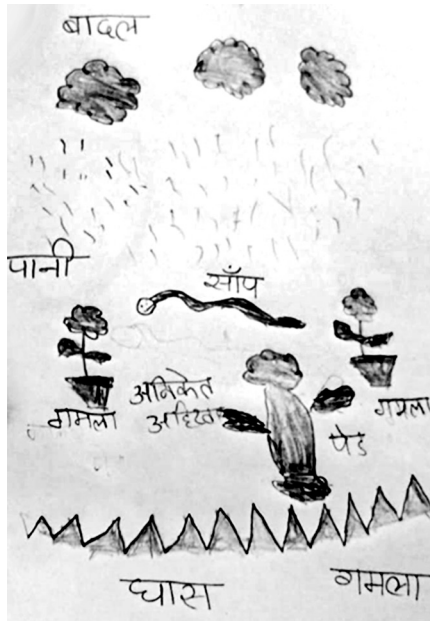 बादल
पानी
साँप
गमला
अनिकेत
गमला
पेड
घास
गमला